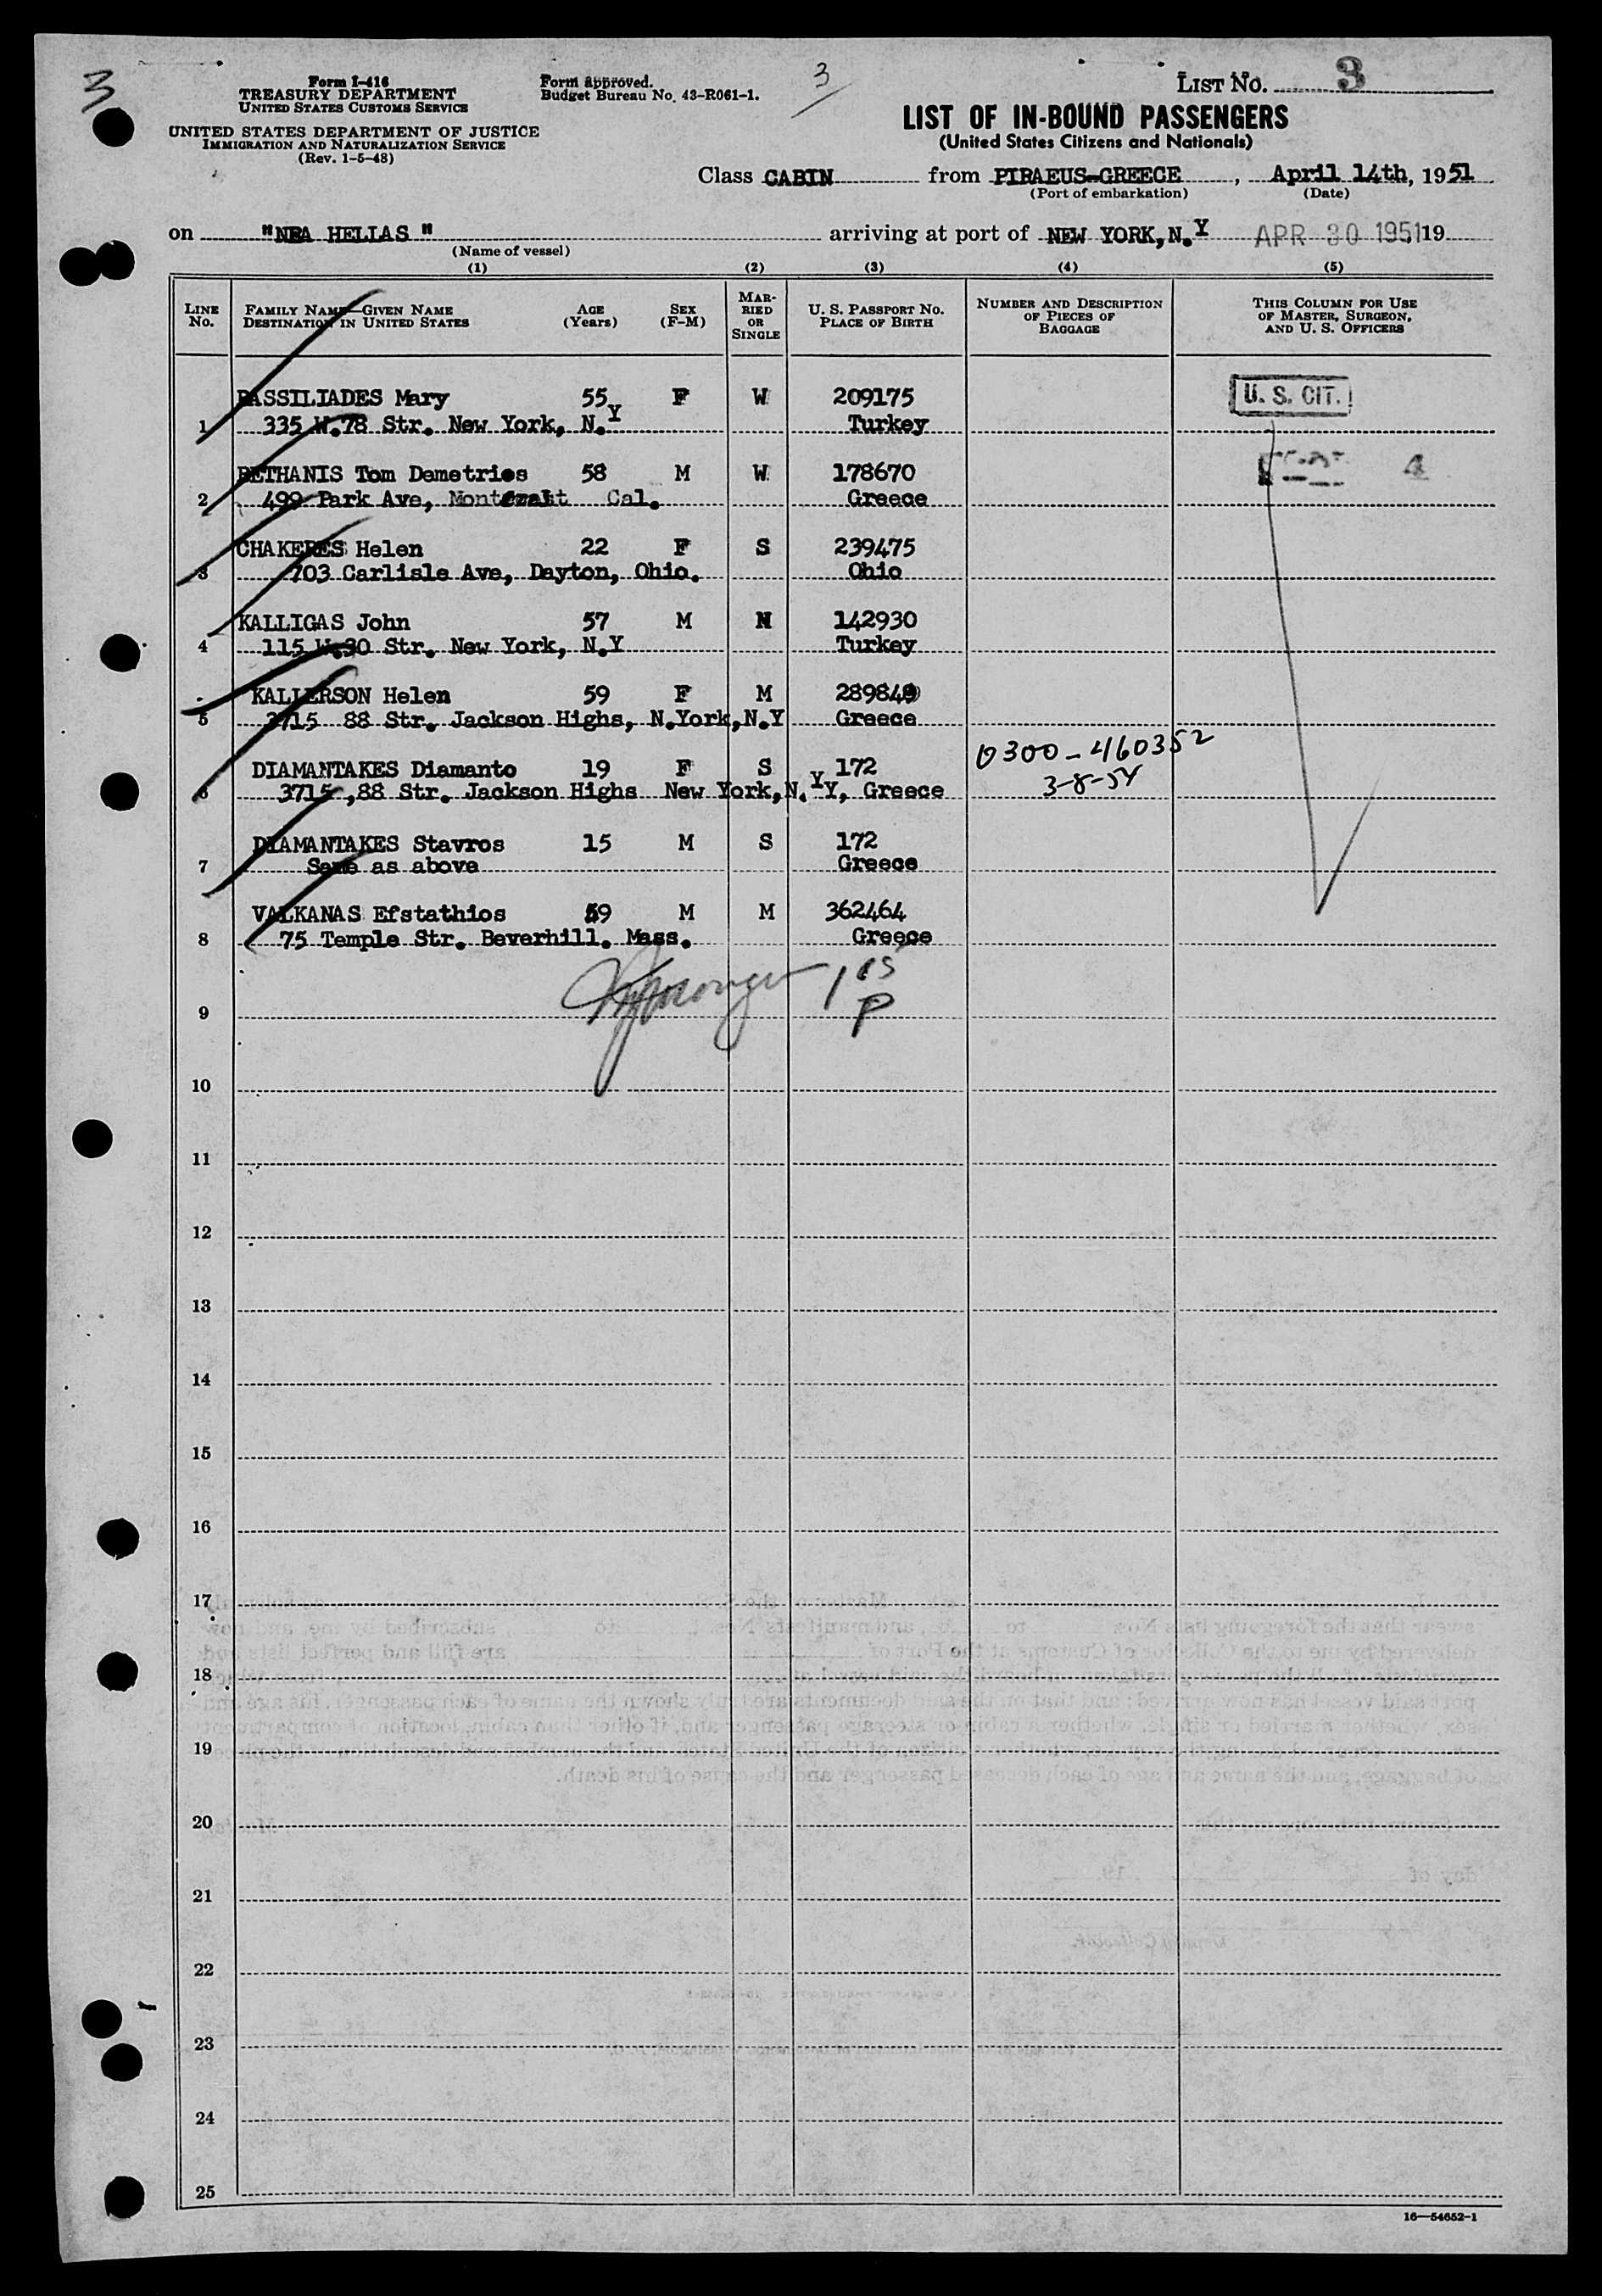 3
Form I-416
TREASURY DEPARTMENT
UNITED STATES CUSTOMS SERVICE
UNITED STATES DEPARTMENT OF JUSTICE
IMMIGRATION AND NATURALIZATION SERVICE
(Rev. 1-5-48)
Form approved.
Budget Bureau No. 43-R061-1.
3
LIST NO. 3
LIST OF IN-BOUND PASSENGERS
(United States Citizens and Nationals)
Class CABIN from PIRAEUS-GREECE, April 14th, 1951
(Port of embarkation) (Date)
on "NEA HELLAS" arriving at port of NEW YORK, N.Y APR 30 1951 19
(Name of vessel)
(1) (2) (3) (4) (5)
LINE No. FAMILY NAME—GIVEN NAME DESTINATION IN UNITED STATES AGE (Years) SEX (F-M) MARRIED OR SINGLE U. S. PASSPORT NO. PLACE OF BIRTH NUMBER AND DESCRIPTION OF PIECES OF BAGGAGE THIS COLUMN FOR USE OF MASTER, SURGEON, AND U. S. OFFICERS
BASSILIADES Mary 55 F W 209175 U. S. CIT.
1 335 W.78 Str. New York, N.Y Turkey
BETHANIS Tom Demetrios 58 M W 178670 4
2 499 Park Ave, Cal. Greece
CHAKERES Helen 22 F S 239475
3 703 Carlisle Ave, Dayton, Ohio. Ohio
KALLIGAS John 57 M M 142930
4 115 W.30 Str. New York, N.Y Turkey
KALLERSON Helen 59 F M 289849
5 3715 88 Str. Jackson Highs, N.York, N.Y Greece
DIAMANTAKES Diamanto 19 F S 172 0300-460352
6 3715 ,88 Str. Jackson Highs New York, N.Y Y, Greece 3-8-54
DIAMANTAKES Stavros 15 M S 172
7 Same as above Greece
VALKANAS Efstathios 59 M M 362464
8 75 Temple Str. Beverhill. Mass. Greece
9
P
10
11
12
13
14
15
16
17
18
19
20
21
22
23
24
25
16—54652-1